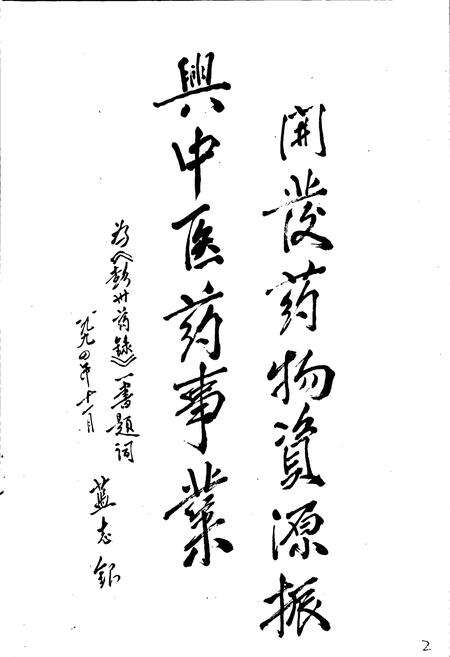 開發药物資源振
興中医药事業
为《彭州药錄》一書题词
一九九四年十一月
藍志銀
2